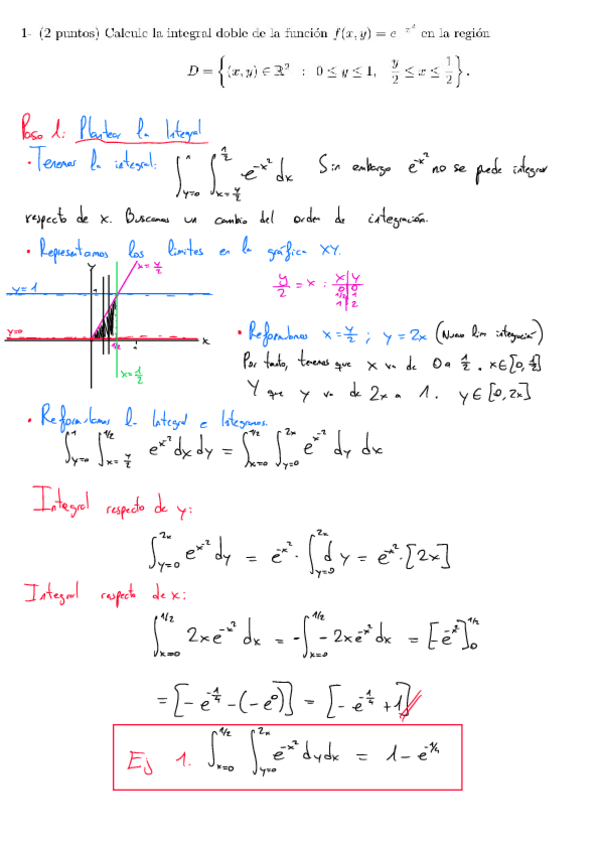 1- (2 puntos) Calcule la integral doble de la función f(x, y) = e^{-x^2} en la región
D = { (x, y) ∈ ℝ² : 0 ≤ y ≤ 1, y/2 ≤ x ≤ 1/2 }.
Paso 1: Plantear la Integral
• Tenemos la integral: ∫_{y=0}^{1} ∫_{x=y/2}^{1/2} e^{-x^2} dx Sin embargo e^{-x^2} no se puede integrar
respecto de x. Buscamos un cambio del orden de integración.
• Representamos los limites en la gráfica XY.
y x=y/2
y=1
y=0 x
1/2
x=1/2
y/2 = x : x|y 0|0 1/2|1 1|2
• Reformulamos x=y/2 ; y=2x (Nuevo lim integración)
Por tanto, tenemos que x va de 0 a 1/2. x∈[0,1/2]
Y que y va de 2x a 1. y∈[0,2x]
• Reformulamos la Integral e Integramos.
∫_{y=0}^{1} ∫_{x=y/2}^{1/2} e^{-x^2} dx dy = ∫_{x=0}^{1/2} ∫_{y=0}^{2x} e^{-x^2} dy dx
Integral respecto de y:
∫_{y=0}^{2x} e^{-x^2} dy = e^{-x^2} · ∫_{y=0}^{2x} dy = e^{-x^2} · [2x]
Integral respecto de x:
∫_{x=0}^{1/2} 2x e^{-x^2} dx = - ∫_{x=0}^{1/2} -2x e^{-x^2} dx = [e^{-x^2}]_0^{1/2}
= [-e^{-1/4} - (-e^0)] = [-e^{-1/4} + 1]
Ej 1. ∫_{x=0}^{1/2} ∫_{y=0}^{2x} e^{-x^2} dy dx = 1 - e^{-1/4}